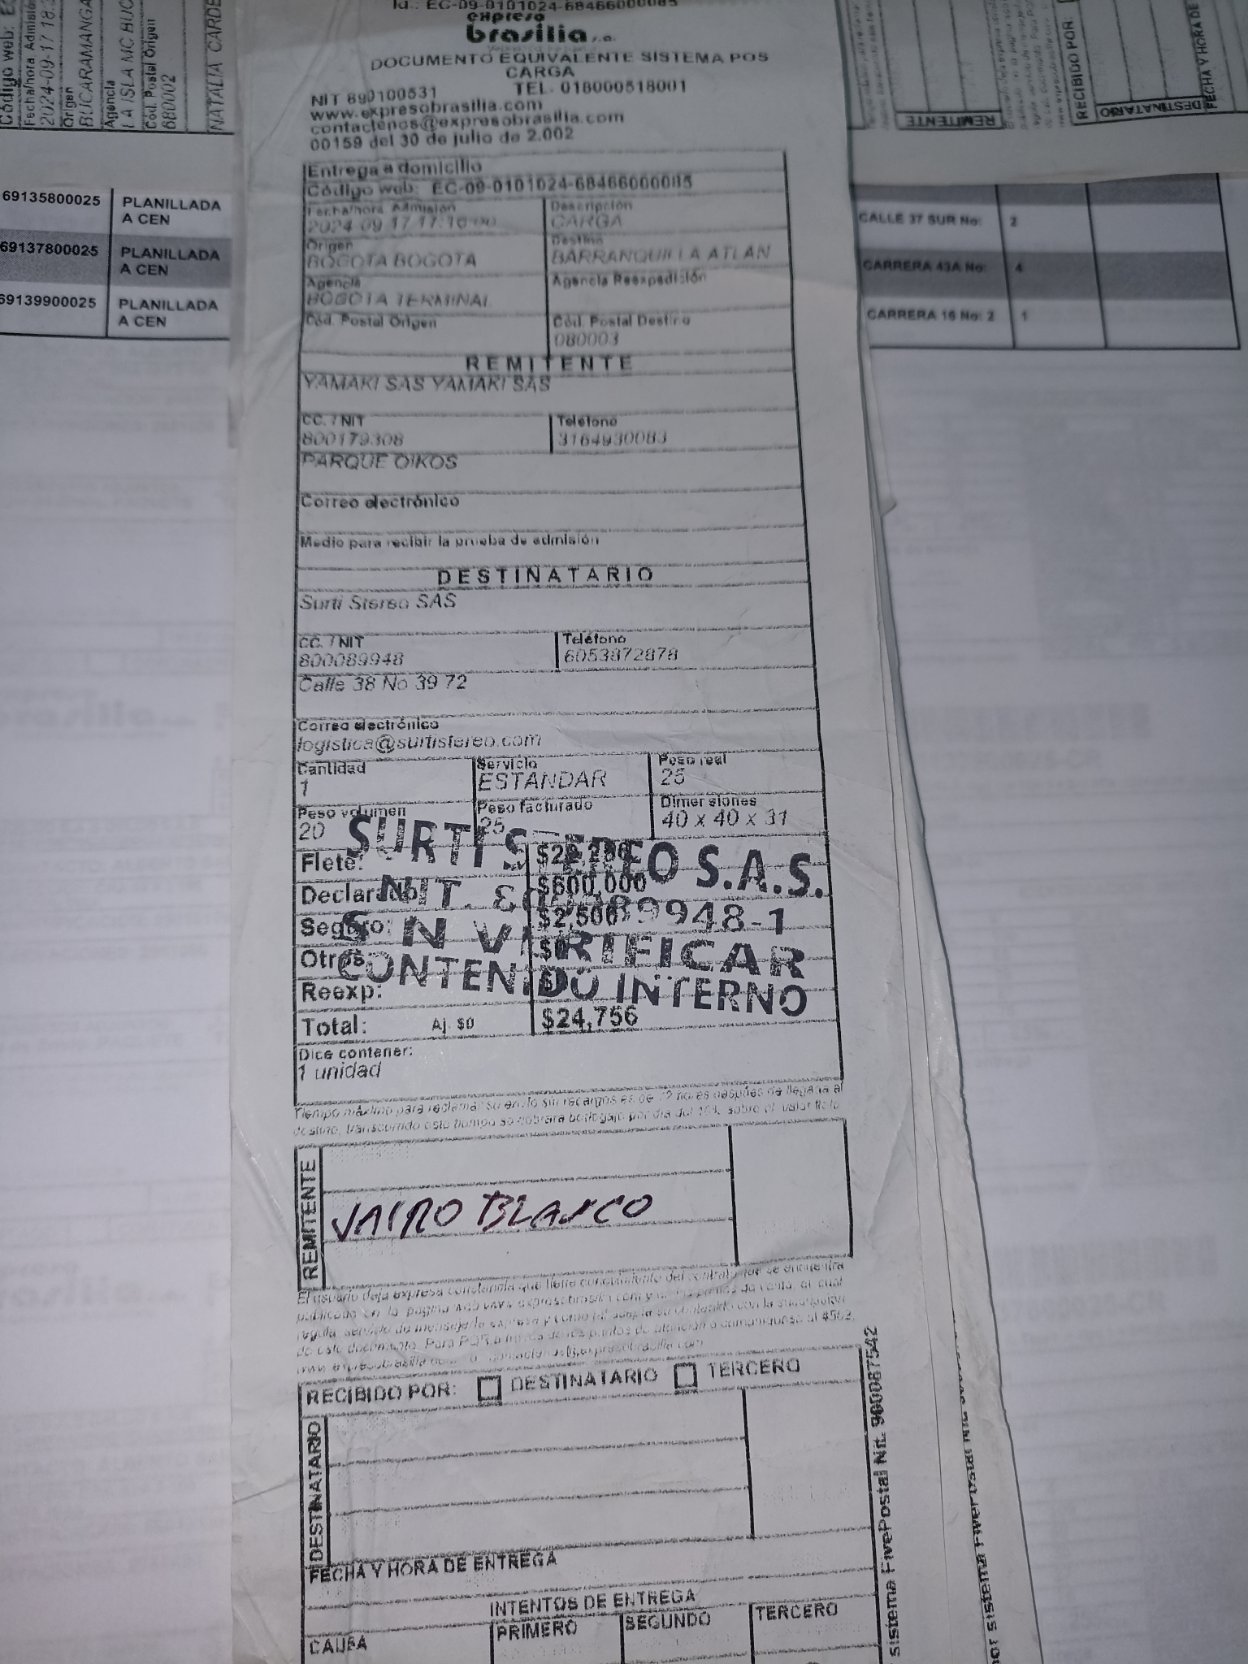 Id.: EC-09-0101024-68466000085
expreso
brasilia s.a.
DOCUMENTO EQUIVALENTE SISTEMA POS
CARGA
NIT 890100531 TEL. 018000518001
www.expresobrasilia.com
contactenos@expresobrasilia.com
00159 del 30 de julio de 2.002
Entrega a domicilio
Código web: EC-09-0101024-68466000085
Fecha/hora Admisión Descripción
2024-09-17 17:16:00 CARGA
Origen Destino
BOGOTA BOGOTA BARRANQUILLA ATLAN
Agencia Agencia Reexpedición
BOGOTA TERMINAL
Cód. Postal Origen Cód. Postal Destino
080003
REMITENTE
YAMAKI SAS YAMAKI SAS
CC. / NIT Teléfono
800179308 3164930083
PARQUE OIKOS
Correo electrónico
Medio para recibir la prueba de admisión
DESTINATARIO
Surti Stereo SAS
CC. / NIT Teléfono
800089948 6053872878
Calle 38 No 39 72
Correo electrónico
logistica@surtistereo.com
Cantidad Servicio Peso real
1 ESTANDAR 25
Peso volumen Peso facturado Dimensiones
20 25 40 x 40 x 31
SURTI STEREO S.A.S.
Flete:
Declarado: $600,000
NIT. 800089948-1
Seguro: $2,500
S N VERIFICAR
Otros: $0
CONTENIDO INTERNO
Reexp:
Total: Aj. $0 $24,756
Dice contener:
1 unidad
Tiempo máximo para reclamar su envío sin recargos es de 72 horas después de llegada al
destino, transcurrido este tiempo se cobrará bodegaje por día del 10% sobre el valor flete
REMITENTE
JAIRO BLANCO
RECIBIDO POR: DESTINATARIO TERCERO
DESTINATARIO
FECHA Y HORA DE ENTREGA
INTENTOS DE ENTREGA
CAUSA PRIMERO SEGUNDO TERCERO
sistema FivePostal Nit. 900087542
Código web:
Fecha/hora Admisión
2024-09-17 18:
Origen
BUCARAMANGA
Agencia
LA ISLA MC BUC
Cód. Postal Origen
680002
NATALIA CARDE
69135800025 PLANILLADA
A CEN
69137800025 PLANILLADA
A CEN
69139900025 PLANILLADA
A CEN
REMITENTE
RECIBIDO POR
DESTINATARIO
FECHA Y HORA DE
CALLE 37 SUR No: 2
CARRERA 43A No: 4
CARRERA 16 No: 2 1